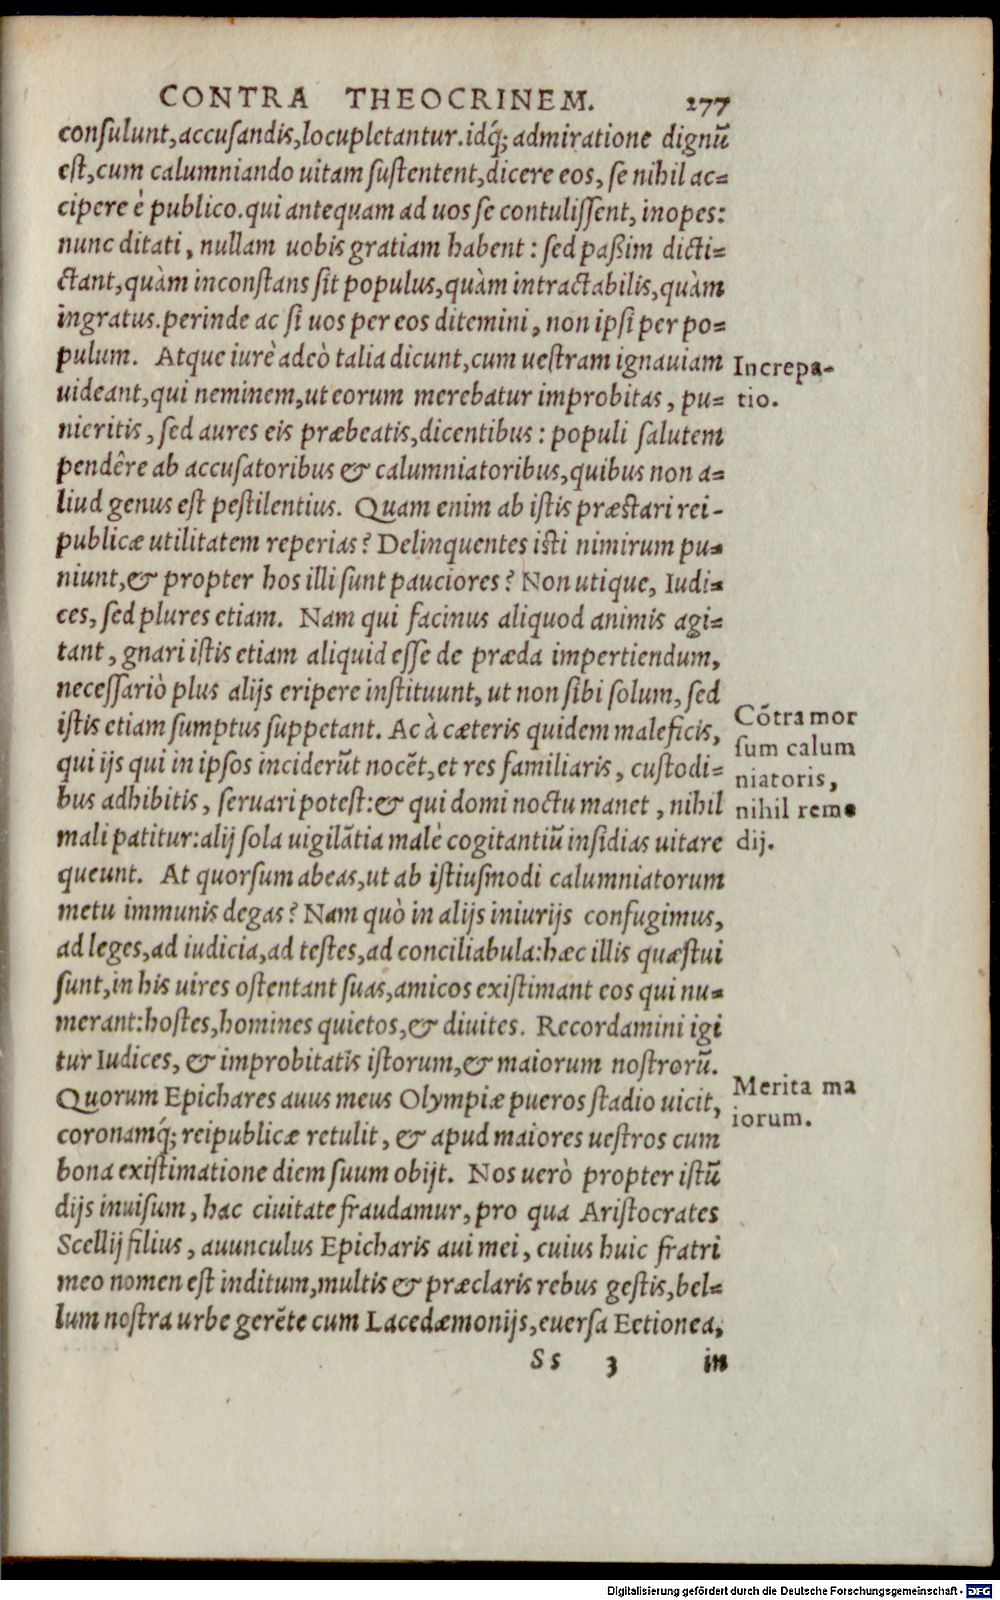 CONTRA THEOCRINEM. 277
consulunt, accusandis, locupletantur. idq́; admiratione dignũ
est, cum calumniando uitam sustentent, dicere eos, se nihil ac=
cipere è publico. qui antequam ad uos se contulissent, inopes:
nunc ditati, nullam uobis gratiam habent: sed paßim dicti=
ctant, quàm inconstans sit populus, quàm intractabilis, quàm
ingratus. perinde ac si uos per eos ditemini, non ipsi per po=
pulum. Atque iurè adeò talia dicunt, cum uestram ignauiam
uideant, qui neminem, ut eorum merebatur improbitas, pu=
nieritis, sed aures eis præbeatis, dicentibus: populi salutem
pendêre ab accusatoribus & calumniatoribus, quibus non a=
liud genus est pestilentius. Quam enim ab istis præstari rei-
publicæ utilitatem reperias? Delinquentes isti nimirum pu=
niunt, & propter hos illi sunt pauciores? Non utique, Iudi=
ces, sed plures etiam. Nam qui facinus aliquod animis agi=
tant, gnari istis etiam aliquid esse de præda impertiendum,
necessariò plus alijs eripere instituunt, ut non sibi solum, sed
istis etiam sumptus suppetant. Ac à cæteris quidem maleficis,
qui ijs qui in ipsos inciderũt nocẽt, et res familiaris, custodi=
bus adhibitis, seruari potest: & qui domi noctu manet, nihil
mali patitur: alij sola uigilãtia malè cogitantiũ insidias uitare
queunt. At quorsum abeas, ut ab istiusmodi calumniatorum
metu immunis degas? Nam quò in alijs iniurijs confugimus,
ad leges, ad iudicia, ad testes, ad conciliabula: hæc illis quæstui
sunt, in his uires ostentant suas, amicos existimant eos qui nu=
merant: hostes, homines quietos, & diuites. Recordamini igi
tur Iudices, & improbitatis istorum, & maiorum nostrorũ.
Quorum Epichares auus meus Olympiæ pueros stadio uicit,
coronamq́; reipublicæ retulit, & apud maiores uestros cum
bona existimatione diem suum obijt. Nos uerò propter istũ
dijs inuisum, hac ciuitate fraudamur, pro qua Aristocrates
Scellij filius, auunculus Epicharis aui mei, cuius huic fratri
meo nomen est inditum, multis & præclaris rebus gestis, bel=
lum nostra urbe gerẽte cum Lacedæmonijs, euersa Eetionea,
Ss 3 in
Increpa-
tio.
Cõtra mor
sum calum
niatoris,
nihil reme
dij.
Merita ma
iorum.
Digitalisierung gefördert durch die Deutsche Forschungsgemeinschaft - DFG